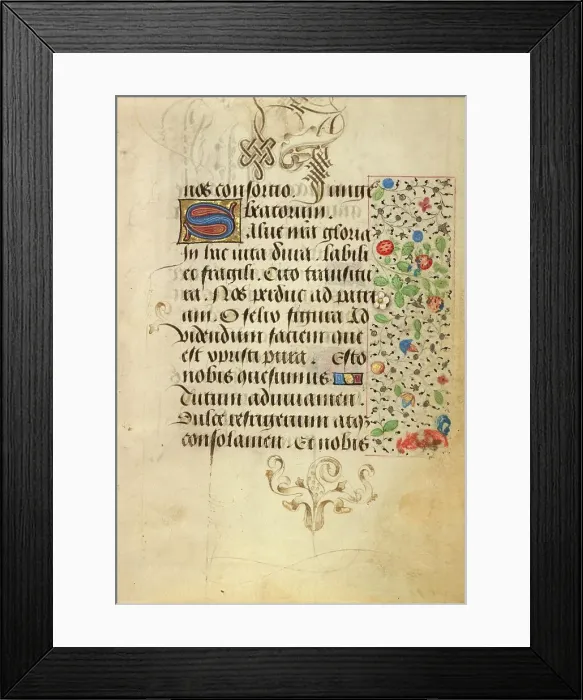 nos consortio. Iunge
beatorum.
Salue nr̃a gloria
In hac uita dura. labili
et fragili. Cito transitu
ra. Nos perduc ad patri
am. O felix figura Ad
videndum faciem que
est xpristi pura. Esto
nobis quesumus
Tutum adiuuamen.
Dulce refrigerium atqꝫ
consolamen. Et nobis